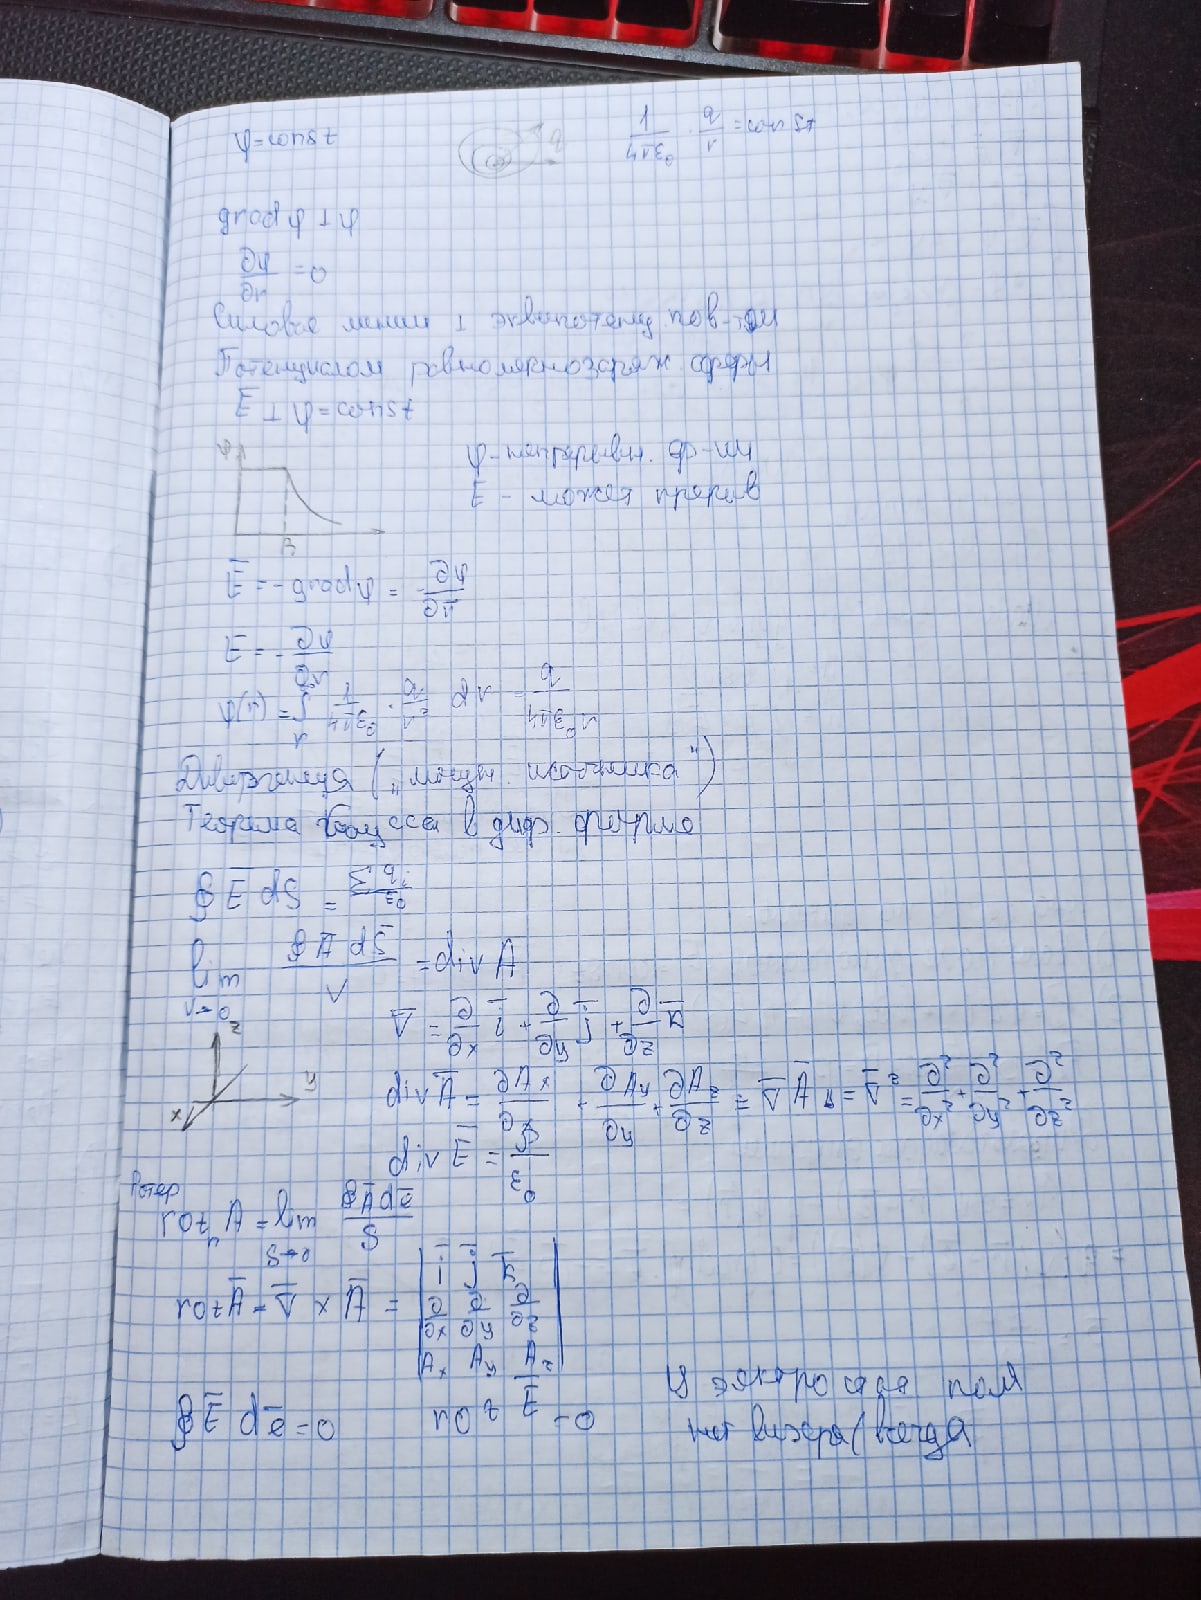 φ=const
1/4πε₀ · q/r = const
grad φ ⊥ φ
∂φ/∂r = 0
Силовые линии ⊥ эквипотенц. пов-ти
Потенциалом равномернозаряж сферы
E ⊥ φ=const
φ
R
φ - непрерывн. ф-ии
E - может прерыв
E̅ = - grad φ = ∂φ/∂n̅
E = - ∂φ/∂r
Дивергенция („мощн. источника“)
Теорема Гаусса в диф. форме
∮ E̅ dS̅ = Σqᵢ/ε₀
lim V→0 ∮A̅ dS̅/V = div A
∇̅ = ∂/∂x i̅ + ∂/∂y j̅ + ∂/∂z k̅
z
y
x
div A̅ = ∂Aₓ/∂x + ∂Aᵧ/∂y + ∂A_z/∂z = ∇̅ A̅
∇̅² = ∂²/∂x² + ∂²/∂y² + ∂²/∂z²
div E̅ = ρ/ε₀
Ротор
rot A = lim S→0 ∮A̅ dℓ̅/S
rot A̅ = ∇̅ × A̅ = | i̅ j̅ k̅
∂/∂x ∂/∂y ∂/∂z
Aₓ Aᵧ A_z |
∮ E̅ dℓ̅ = 0
rot E̅ = 0
нет вихря/всегда